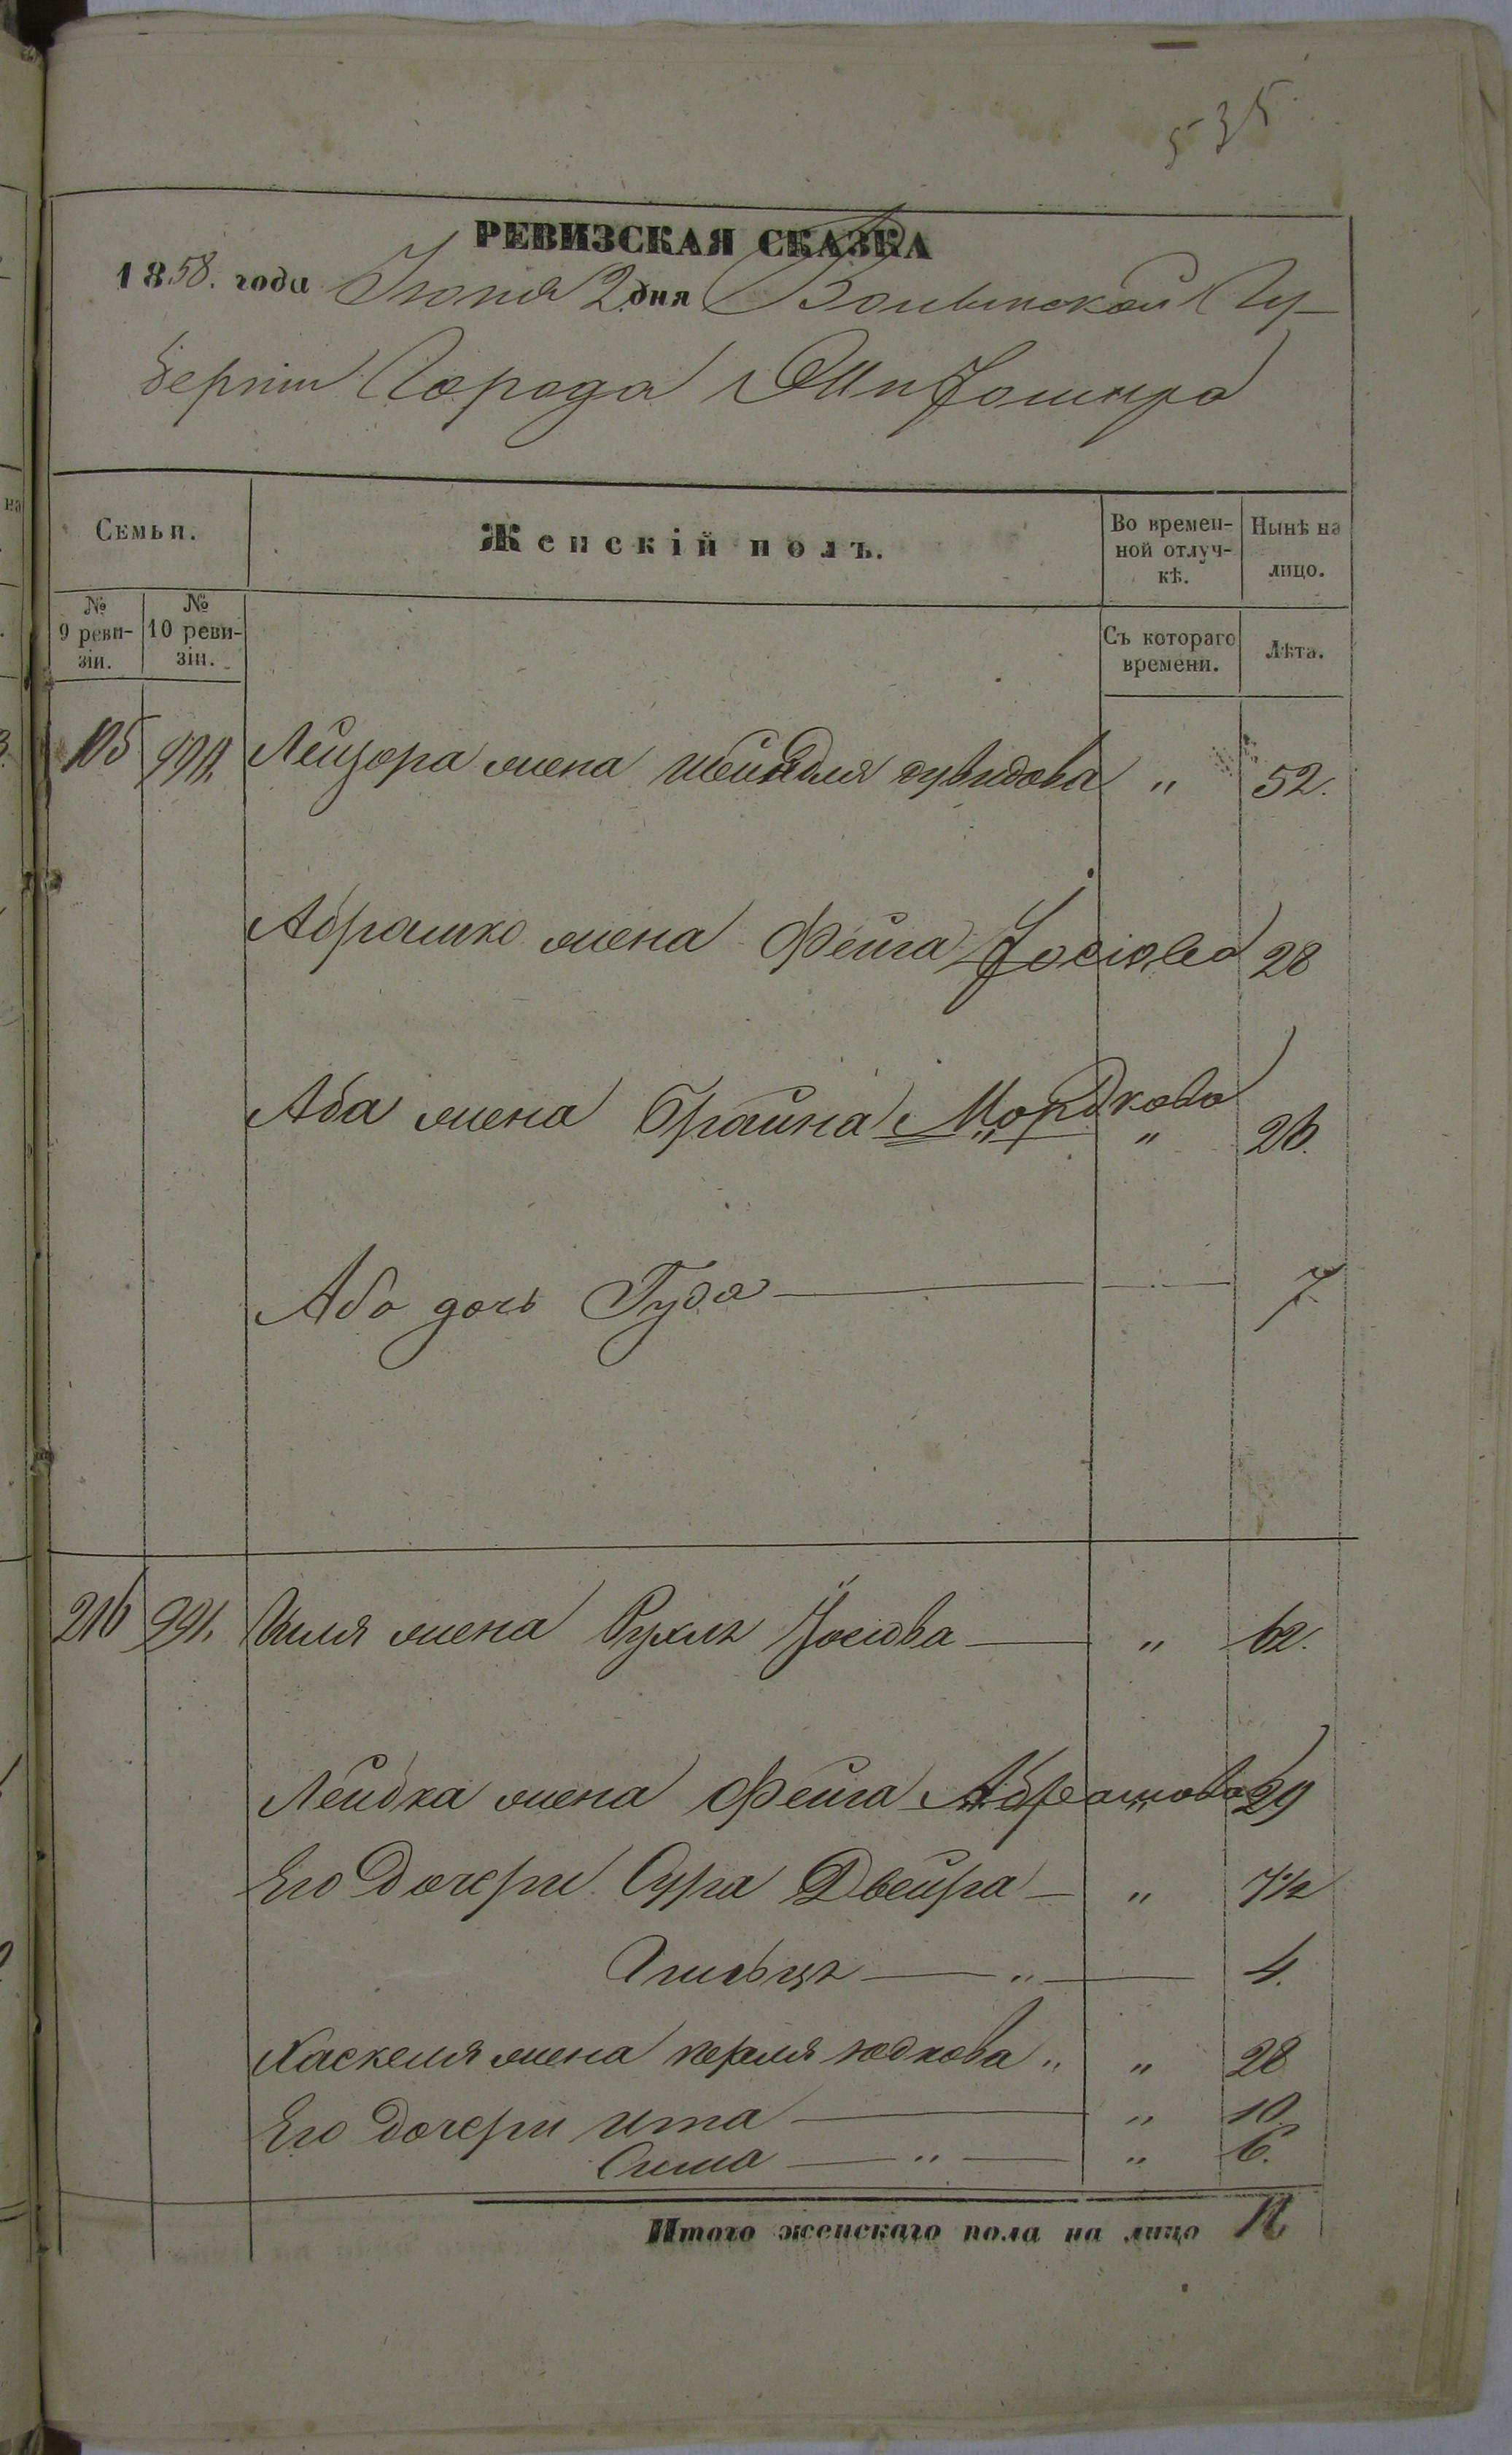 535.
РЕВИЗСКАЯ СКАЗКА
1858. года Іюня 2 дня Волынской Гу-
берніи Города Житомира
Семьи.
Женскій полъ.
Во времен-
ной отлуч-
кѣ.
Нынѣ на
лицо.
№
9 реви-
зіи.
№
10 реви-
зіи.
Съ котораго
времени.
Лѣта.
105 990. Лейзора жена Шейндля дувидова " 52.
Абрашко жена Фейга Іосіова 28
Аба жена Браина Мордкова " 26.
Аба дочь Гуда 7
216 991. жена Рухля Іосіова " 62.
Лейбка жена Фейга Абрамова " 29
Его дочери Сура Двейра " 7½
4.
Хаскеля жена перля юдкова " " 28
Его дочери ита " 10.
Сима " " 6.
Итого женскаго пола на лицо 11